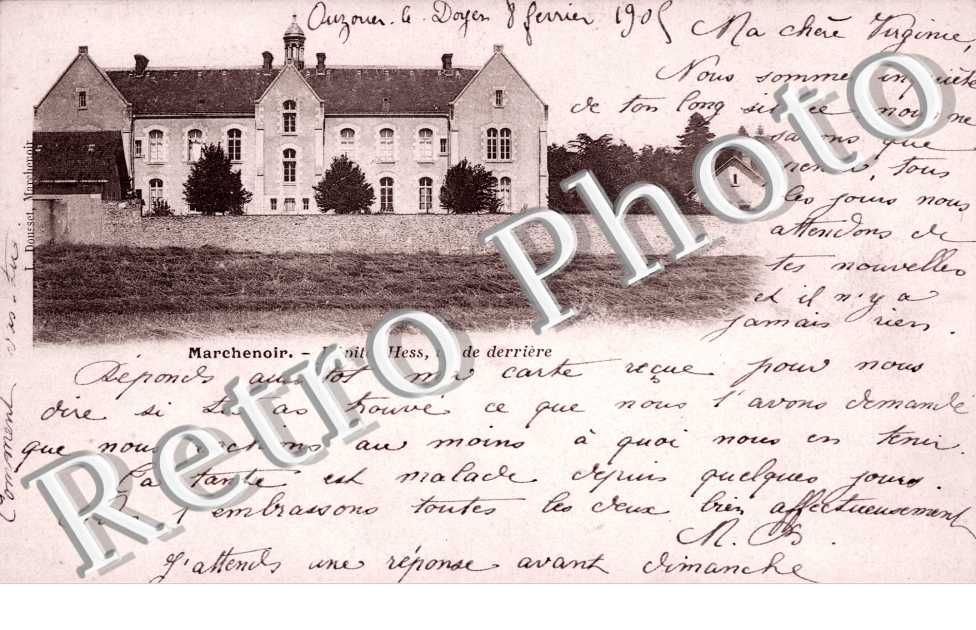 Ouzouer-le-Doyen 8 fevrier 1905
Ma chère Virginie,
Nous somme inquiète
de ton long silence nous ne
savons que
penser, tous
les jours nous
attendons de
tes nouvelles
et il n'y a
jamais rien.
L. Dousset, Marchenoir
Marchenoir. – Hess, de derrière
Réponds aussitot ma carte reçue pour nous
dire si tu as trouvé ce que nous t'avons demandé
que nous au moins à quoi nous en tenir.
Ta tante est malade depuis quelques jours.
t'embrassons toutes les deux bien affectueusement
M. B.
J'attends une réponse avant dimanche
Comment vas-tu
Retro Photo